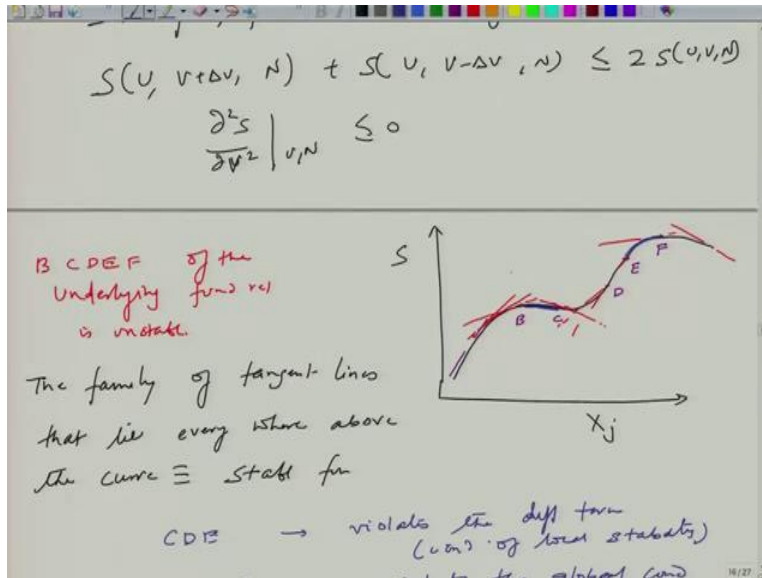 S(U, V+ΔV, N) + S(U, V-ΔV, N) ≤ 2 S(U,V,N)
∂²S/∂V² | U,N ≤ 0
B C D E F of the
underlying fund rel
is unstable.
The family of tangent lines
that lie every where above
the curve ≡ stabl fun
S
B
C
D
E
F
Xj
CDE → violates the diff form
(cond. of local stability)
the global cond
16/27